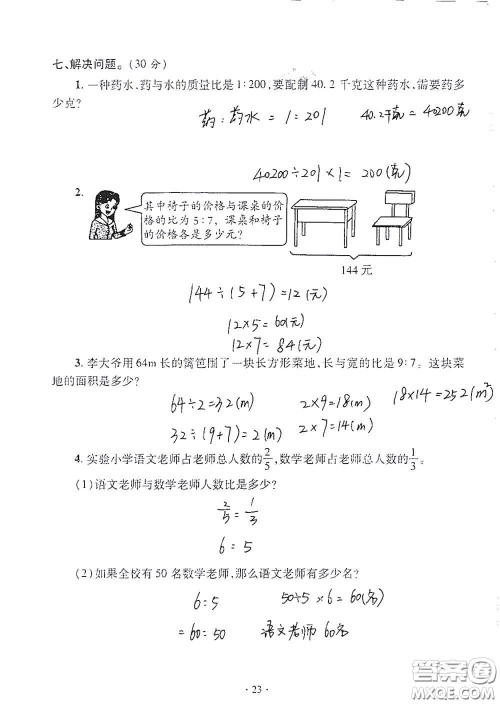 七、解决问题。(30 分)
1. 一种药水,药与水的质量比是 1∶200,要配制 40.2 千克这种药水,需要药多
少克?
药:药水 = 1:201   40.2千克 = 40200克
40200÷201×1=200(克)
2.
其中椅子的价格与课桌的价
格的比为 5∶7,课桌和椅子
的价格各是多少元?
144 元
144÷(5+7)=12(元)
12×5=60(元)
12×7=84(元)
3. 李大爷用 64m 长的篱笆围了一块长方形菜地,长与宽的比是 9∶7。这块菜
地的面积是多少?
64÷2=32(m)   2×9=18(m)   18×14=252(m²)
32÷(9+7)=2(m)   2×7=14(m)
4. 实验小学语文老师占老师总人数的2/5,数学老师占老师总人数的1/3。
(1)语文老师与数学老师人数比是多少?
2/5 : 1/3
6:5
(2)如果全校有 50 名数学老师,那么语文老师有多少名?
6:5   50÷5×6=60(名)
=60:50   语文老师 60名
· 23 ·
答案圈
MXQE.COM